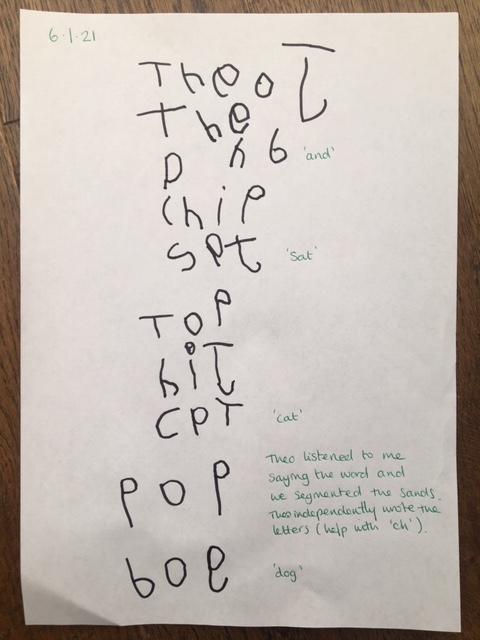 6.1.21
Theo T
the
p n b 'and'
Chip
spt 'sat'
Top
hit
CPT 'cat'
pop
Theo listened to me
saying the word and
we segmented the sands.
Theo independently wrote the
letters (help with 'ch').
boe 'dog'